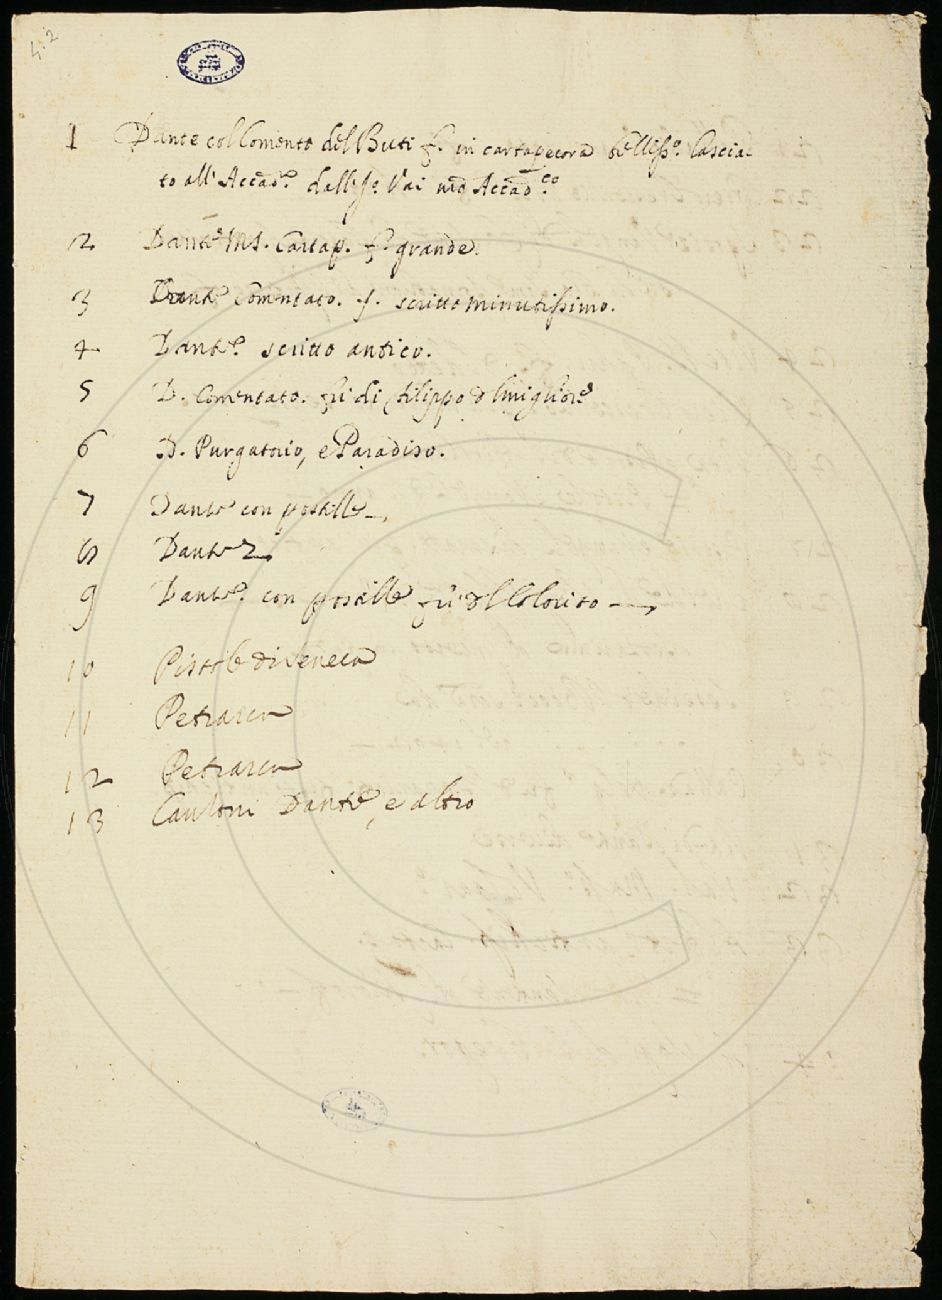 4.2
1 Dante col Comento del Buti f.º in cartapecora belliss.º lascia-
to all' Accad.ª dall' Vai nro Accad.co
2 Dante MS. Cartap. f.º grande.
3 Dante Comentato. f. scritto minutissimo.
4 Dante. scritto antico.
5 D. Comentato. fù di Filippo
6 D. Purgatorio, e Paradiso.
7 Dante con postille
8 Dante
9 Dante. con postille fù del Colorito
10 Pistole di Seneca
11 Petrarca
12 Petrarca
13 Canzoni Dante, e altro